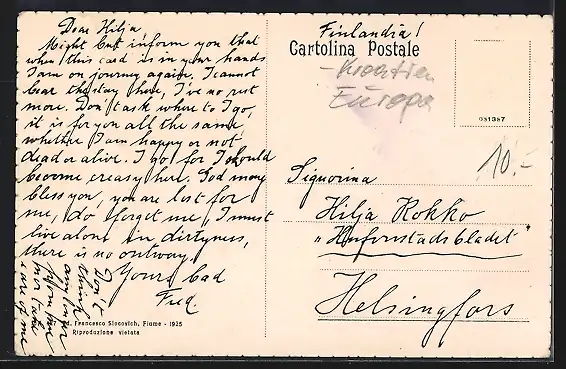 Dear Hilja
Might but inform you that
when this card is in your hands
I am on journey again. I cannot
bear the stay here, I've no rest
more. Don't ask where to I go,
it is for you all the same
whether I am happy or not
dead or alive. I go for I should
become creasy here. God may
bless you, you are lost for
me, do forget me, I must
live alone in dirtyness,
there is no outway.
Yours bad
Fred.
Don't
think
care of me
Francesco Slocovich, Fiume - 1925
Riproduzione vietata
Finlandia!
Cartolina Postale
- Kroatien
Europa
081387
10.-
Signorina
Hilja Kokko
"Hufvustadsbladet"
Helsingfors